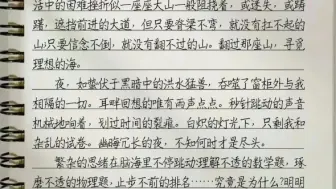 活中的困难挫折似一座座大山一般阻挠着，或迷失，或踌
躇，遮挡前进的道大，但只要脊梁不弯，就没有扛不起的
山只要信念不倒，就没有翻不过的山。翻过那座山，寻觅
理想的海。
夜，如蛰伏于黑暗中的洪水猛兽，吞噬了窗柜外与我
相隔的一切。耳畔回想的唯有雨声点点。秒针跳动的声音
机械地响着，划过时间的裂痕。白炽的灯光下，只剩我和
杂乱的试卷。幽晦冗长的夜，不知何时才是尽头。
繁杂的思绪在脑海里不停跳动理解不透的数学题，琢
磨不透的物理题，止步不前的排名……究竟是为什么?明明